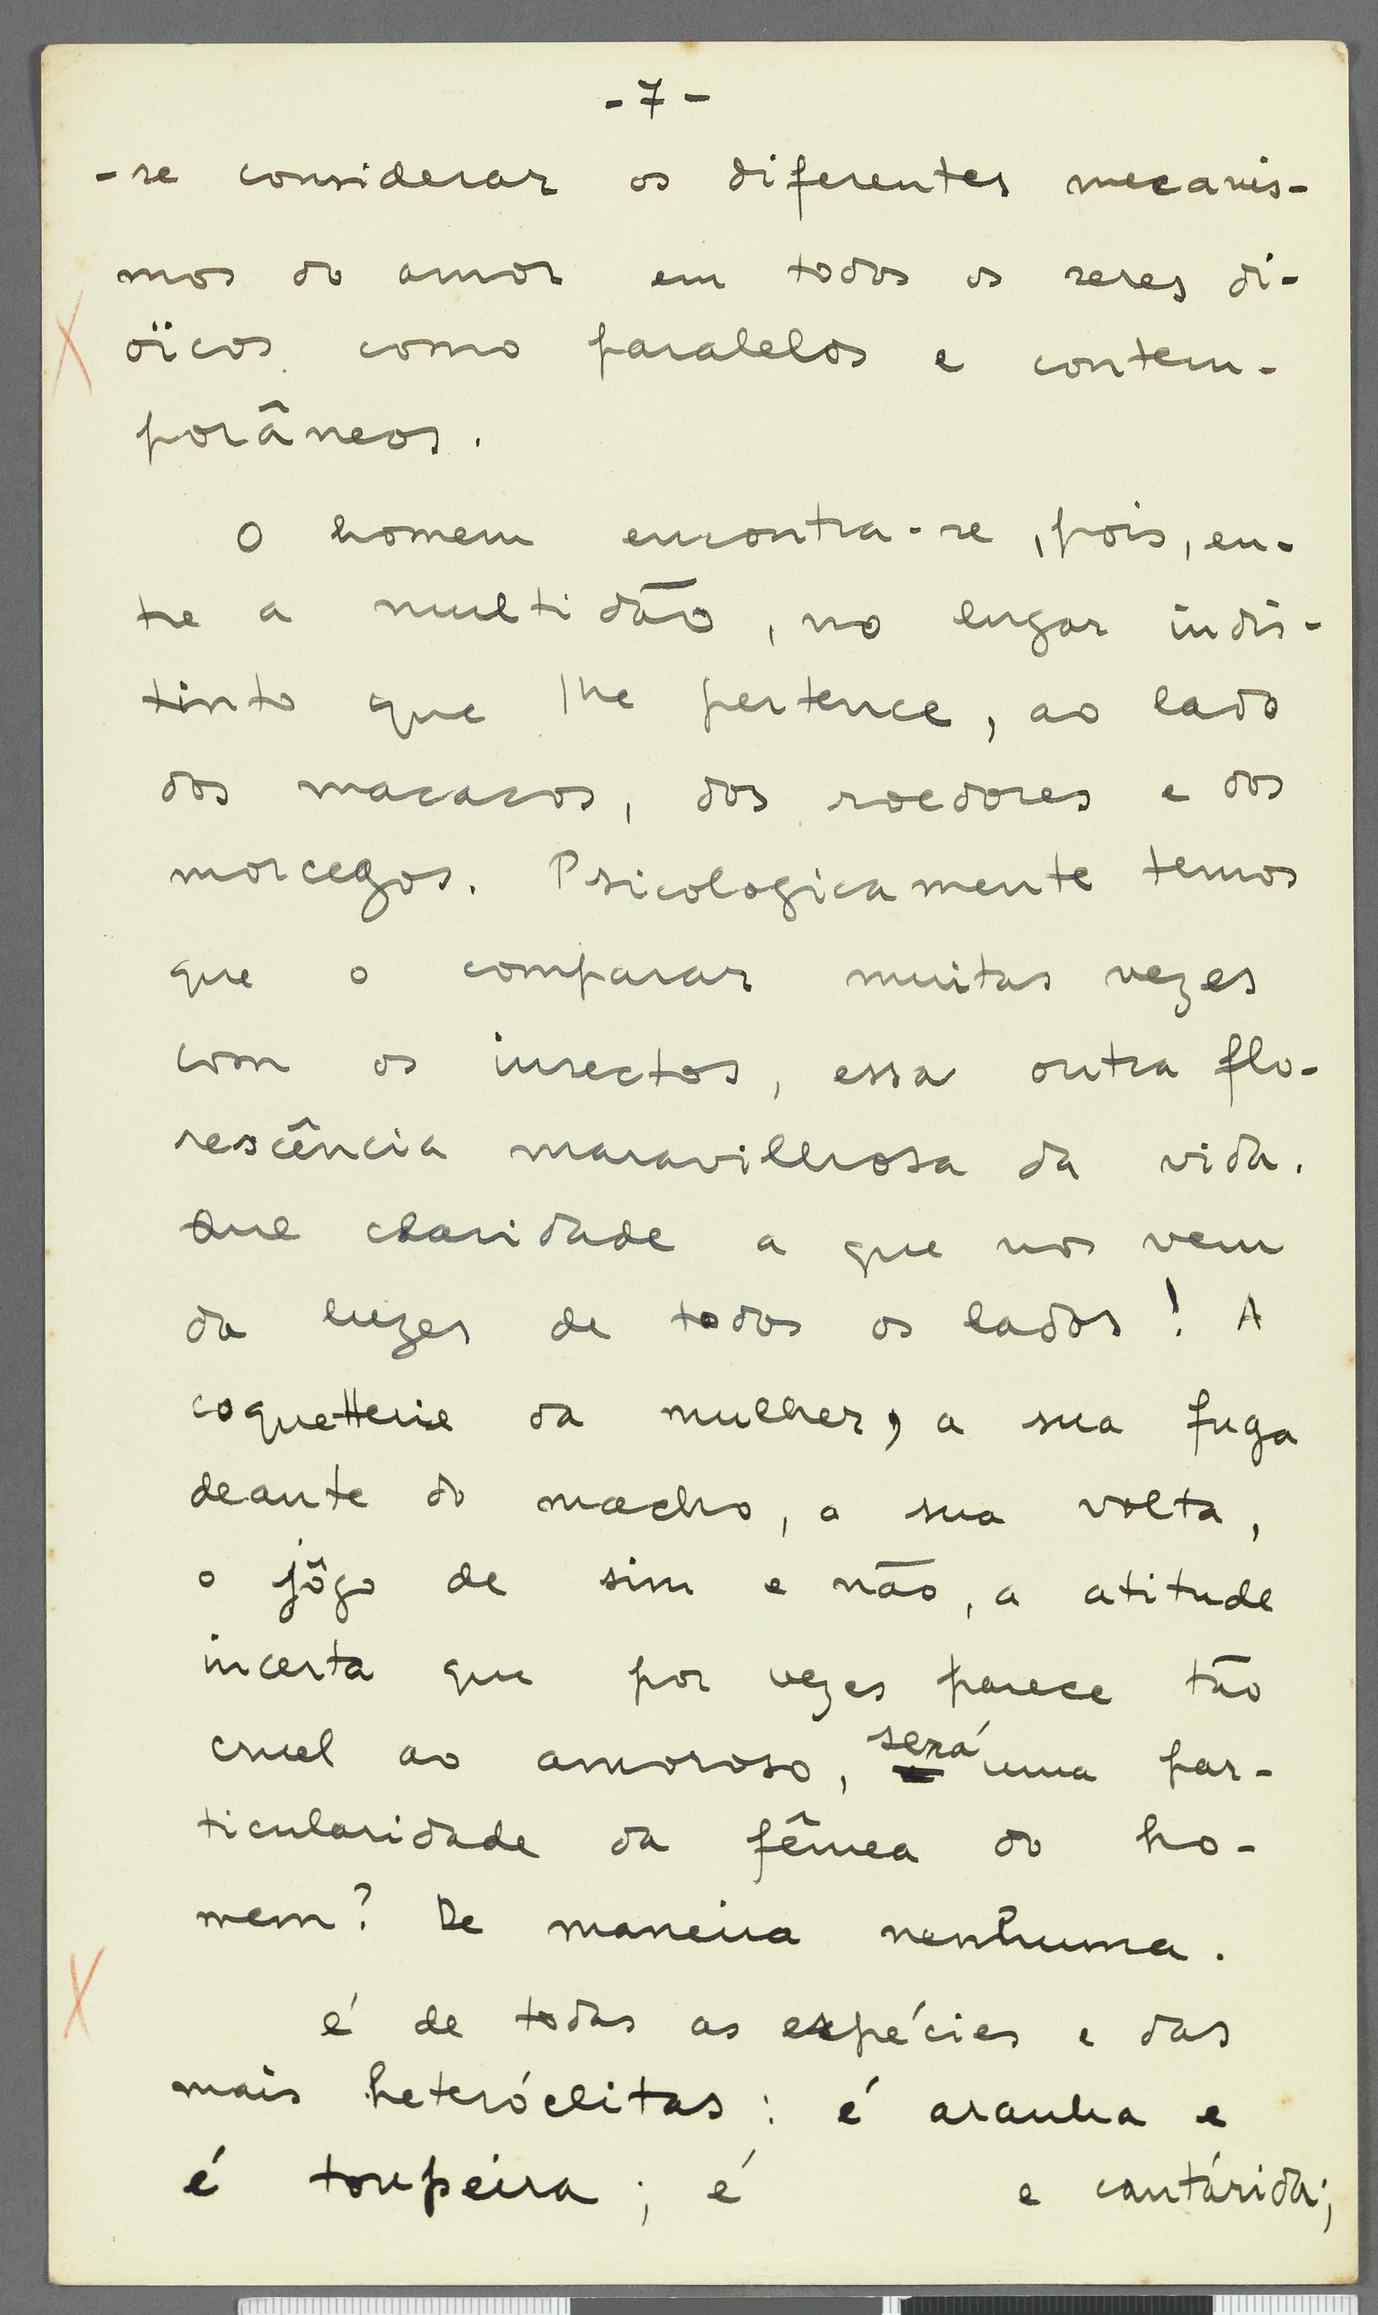 - 7 -
-se considerar os diferentes mecanis-
mos do amor em todos os seres di-
óïcos como paralelos e contem-
porâneos.
O homem encontra-se, pois, en-
tre a multidão, no lugar indis-
tinto que lhe pertence, ao lado
dos macacos, dos roedores e dos
morcegos. Psicologicamente temos
que o comparar muitas vezes
com os insectos, essa outra flo-
rescência maravilhosa da vida.
Que claridade a que nos vem
da luzes de todos os lados! A
coquetterie da mulher, a sua fuga
deante do macho, a sua volta,
o jôgo de sim e não, a atitude
incerta que por vezes parece tão
cruel ao amoroso, será uma par-
ticularidade da fêmea do ho-
mem? De maneira nenhuma.
é de todas as espécies e das
mais heteróclitas: é aranha e
é toupeira; é e cantárida;
X
X